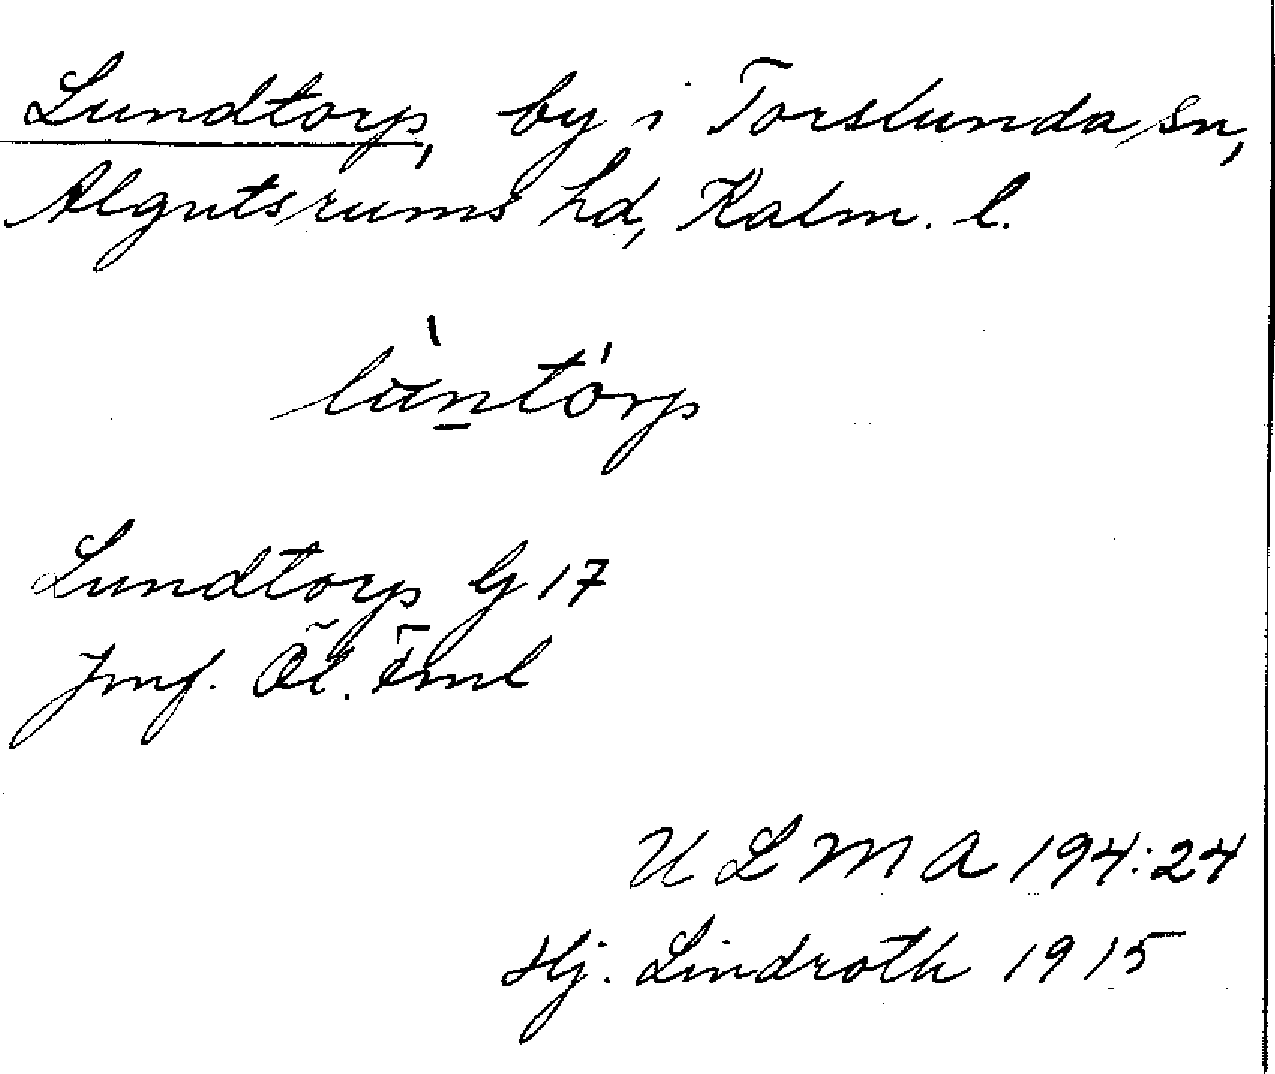 Lundtorp, by i Torslunda sn,
Algutsrums hd, Kalm. l.
lùntórp
Lundtorp G 17
Jmf. Öl. Fml
U L M A 194:24
Hj. Lindroth 1915